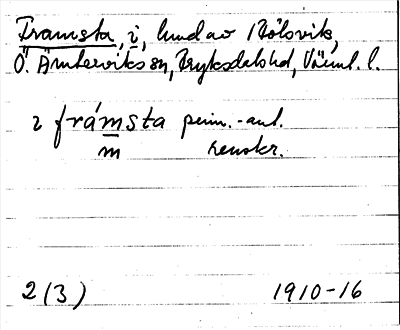 Framsta, i, hmd av Rölsvik,
Ö. Ämterviks sn, Fryksdals hd, Värml. l.
i frámsta penn.-ant.
m renskr.
2 (3) 1910-16